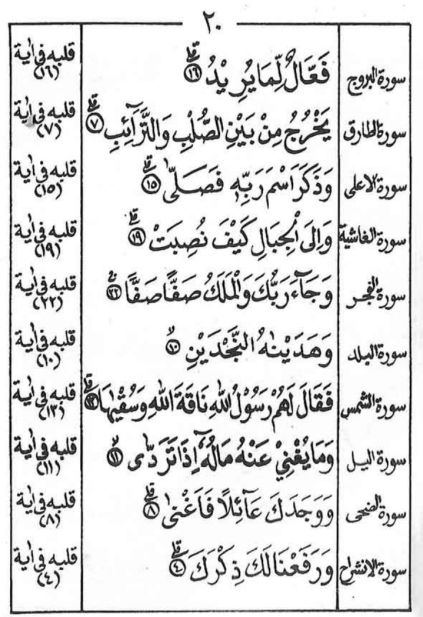 ٢٠
سورة البروج فَعَّالٌ لِّمَا يُرِيْدُ ﴿١٦﴾ قلبه فى اية (١٦)
سورة الطارق يَخْرُجُ مِنْ بَيْنِ الصُّلْبِ وَالتَّرَآئِبِ ﴿٧﴾ قلبه فى اية (٧)
سورة الاعلى وَذَكَرَ اسْمَ رَبِّهٖ فَصَلّٰى ﴿١٥﴾ قلبه فى اية (١٥)
سورة الغاشية وَاِلَى الْجِبَالِ كَيْفَ نُصِبَتْ ﴿١٩﴾ قلبه فى اية (١٩)
سورة الفجر وَجَآءَ رَبُّكَ وَالْمَلَكُ صَفًّا صَفًّا ﴿٢٢﴾ قلبه فى اية (٢٢)
سورة البلد وَهَدَيْنٰهُ النَّجْدَيْنِ ﴿١٠﴾ قلبه فى اية (١٠)
سورة الشمس فَقَالَ لَهُمْ رَسُوْلُ اللّٰهِ نَاقَةَ اللّٰهِ وَسُقْيٰهَا ﴿١٣﴾ قلبه فى اية (١٣)
سورة اليل وَمَا يُغْنِيْ عَنْهُ مَالُهٗٓ اِذَا تَرَدّٰى ﴿١١﴾ قلبه فى اية (١١)
سورة الضحى وَوَجَدَكَ عَآئِلًا فَاَغْنٰى ﴿٨﴾ قلبه فى اية (٨)
سورة الانشراح وَرَفَعْنَا لَكَ ذِكْرَكَ ﴿٤﴾ قلبه فى اية (٤)